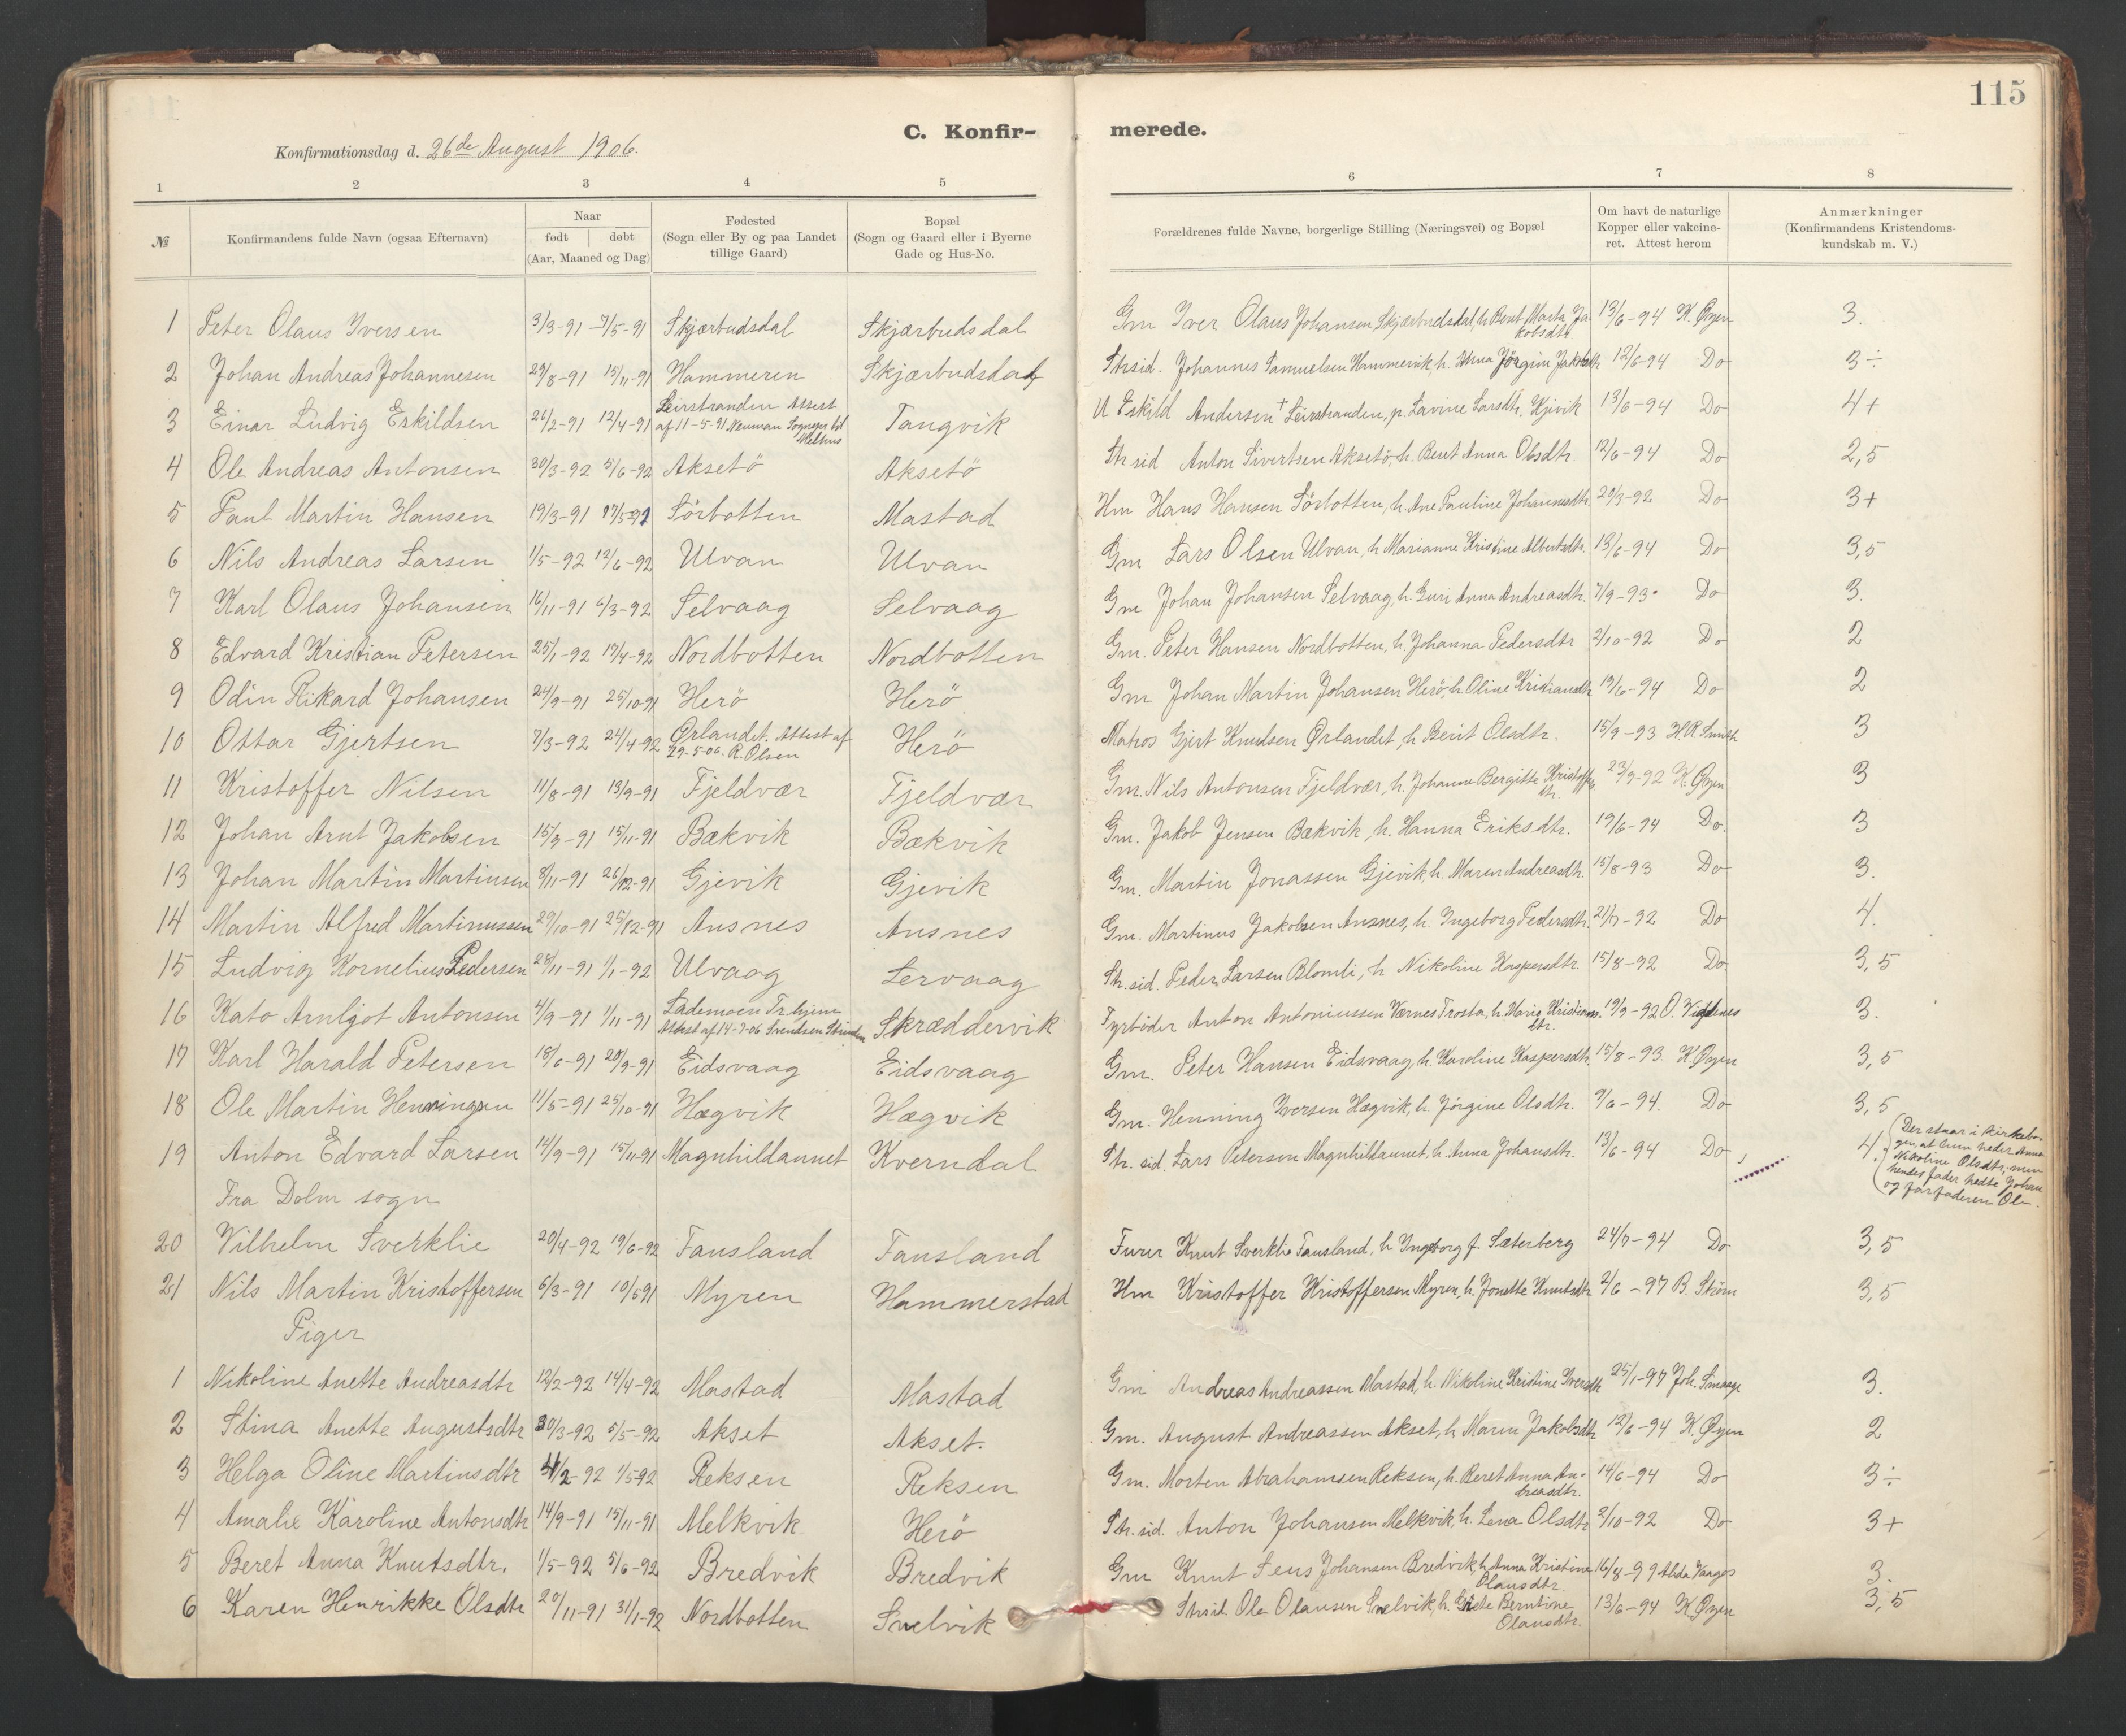 115
C. Konfir- merede.
Konfirmationsdag d. 26de August 1906.
1 2 3 4 5 6 7 8
№ Konfirmandens fulde Navn (ogsaa Efternavn) Naar født døbt (Aar, Maaned og Dag) Fødested (Sogn eller By og paa Landet tillige Gaard) Bopæl (Sogn og Gaard eller i Byerne Gade og Hus-No. Forældrenes fulde Navne, borgerlige Stilling (Næringsvei) og Bopæl Om havt de naturlige Kopper eller vakcineret. Attest herom Anmærkninger (Konfirmandens Kristendomskundskab m. V.)
1 Peter Olaus Iversen 3/3-91 7/5-91 Skjærbudsdal Skjærbudsdal Gm Iver Olaus Johansen Skjærbudsdal, h. Beret Marta Jakobsdtr 13/6-94 K. Øyen 3.
2 Johan Andreas Johannesen 29/8-91 15/11-91 Hammeren Skjærbudsdal Strsid. Johannes Samuelsen Hammervik, h. Anna Jørgine Jakobsdtr 12/6-94 Do 3÷
3 Einar Ludvig Eskildsen 26/2-91 12/4-91 Leirstranden Attest af 11-5-91 Neuman Sognepr til Melhus Tangvik U Eskild Andersen † Leirstranden, p. Lavine Larsdtr. Kjivik 13/6-94 Do 4+
4 Ole Andreas Antonsen 30/3-92 5/6-92 Aksetö Aksetö Str sid Anton Sivertsen Aksetö, h. Beret Anna Olsdtr. 12/6-94 Do 2,5
5 Paul Martin Hansen 19/3-91 17/5-91 Sörbotten Mastad Hm Hans Hansen Sörbotten, h. Ane Pauline Johannesdtr. 20/3-92 Do 3+
6 Nils Andreas Larsen 1/5-92 12/6-92 Ulvan Ulvan Gm Lars Olsen Ulvan, h Marianne Kristine Albertsdtr. 13/6-94 Do 3,5
7 Karl Olaus Johansen 16/11-91 6/3-92 Selvaag Selvaag Gm Johan Johansen Selvaag, h. Guri Anna Andreasdtr. 7/9-93. Do 3.
8 Edvard Kristian Petersen 25/1-92 17/4-92 Nordbotten Nordbotten Gm. Peter Hansen Nordbotten, h. Johanna Pedersdtr 2/10-92 Do 2
9 Odin Rikard Johansen 24/9-91 25/10-91 Herö Herö Gm Johan Martin Johansen Herö, h. Oline Kristiansdtr 19/6-94 Do 2
10 Ottar Gjertsen 7/3-92 24/4-92 Ørlandet. Attest af 29-5-06. R. Olsen Herö Matros Gjert Knudsen Ørlandet, h Berit Olsdtr. 15/9-93 H.R. Smith 3
11 Kristoffer Nilsen 11/8-91 13/9-91 Fjeldvær Fjeldvær Gm. Nils Antonsen Fjeldvær, h. Johanne Bergitte Kristoffedtr. 23/9-92 K. Øyen 3
12 Johan Arnt Jakobsen 15/9-91 15/11-91 Bækvik Bækvik Gm. Jakob Jensen Bækvik, h. Hanna Eriksdtr. 19/6-94 Do. 3
13 Johan Martin Martinsen 8/11-91 26/12-91 Gjevik Gjevik Gm. Martin Jonassen Gjevik, h. Maren Andreasdtr. 15/8-93 Do 3.
14 Martin Alfred Martinussen 29/10-91 25/12-91 Ansnes Ansnes Gm. Martinus Jakobsen Ansnes, h. Ingeborg Pedersdtr. 21/7-92 Do 4.
15 Ludvig Kornelius Pedersen 28/11-91 1/1-92 Ulvaag Lervaag Str. sid. Peder Larsen Blomli, h Nikoline Kaspersdtr. 15/8-92 Do. 3,5
16 Kato Arnljot Antonsen 4/9-91 1/11-91 Lademoen Tr.hjem Attest af 14-7-06 Svendsen Strinden Skræddervik Fyrbøder Anton Antoniussen Værnes Trosta, h. Marie Kristiansdtr. 19/9-92 O. Vigdenes 3.
17 Karl Harald Petersen 18/6-91 20/9-91 Eidsvaag Eidsvaag Gm. Peter Hansen Eidsvaag, h. Karoline Kaspersdtr. 15/8-93. K. Øyen 3,5
18 Ole Martin Henningsen 11/5-91 25/10-91 Hægvik Hægvik Gm. Henning Iversen Hægvik, h. Jörgine Olsdtr. 9/6-94. Do 3,5
19 Anton Edvard Larsen 14/9-91 15/11-91 Magnhildaunet Kverndal Str. sid. Lars Petersen Magnhildaunet, h. Anna Johansdtr. 13/6-94 Do 4.
(Der staar i kirkebogen, at hun heder Anna Nikoline Olsdtr; men hendes fader hedte Johan og farfaderen Ole.
Fra Dolm sogn
20 Vilhelm Sverklie 20/4-92 19/6-92 Fausland Fausland Furer Knut Sverklie Fausland, h Ingeborg f. Sæterberg 24/7-94 Do 3,5
21 Nils Martin Kristoffersen 6/3-91 10/5 91 Myren Hammerstad Hm Kristoffer Kristoffersen Myren, h. Jonette Knutsdtr 2/6-97 B. Ström 3,5
Piger
1 Nikoline Anette Andreasdtr 12/2-92 14/4-92 Mastad Mastad Gm Andreas Andreassen Mastad, h. Nikoline Kristine Iversdtr 25/1-97 Joh. Smaage 3.
2 Stina Anette Augustsdtr 30/3-92 5/5-92 Akset Akset. Gm. August Andreassen Akset, h Maren Jakobsdtr 12/6-94 K. Øyen 2
3 Helga Oline Martinsdtr 4/2-92 1/5-92 Reksen Reksen Gm. Morten Abrahamsen Reksen, h. Beret Anna Andreasdtr. 14/6-94 Do 3÷
4 Amalie Karoline Antonsdtr 14/9-91 15/11-91 Melkvik Herö Str. sid. Anton Johansen Melkvik, h. Lena Olsdtr 2/10-92 Do 3+
5 Beret Anna Knutsdtr. 1/5-92 5/6-92 Bredvik Bredvik Gm Knut Jens Johansen Bredvik, h. Anna Kristine Olausdtr. 16/8-99 Alda Vaagøs 3.
6 Karen Henrikke Olsdtr 20/11-91 31/1-92 Nordbotten Snelvik Strsid. Ole Olausen Snelvik, h. Grete Berntine Olausdtr. 13/6-94 K. Øyen 3,5